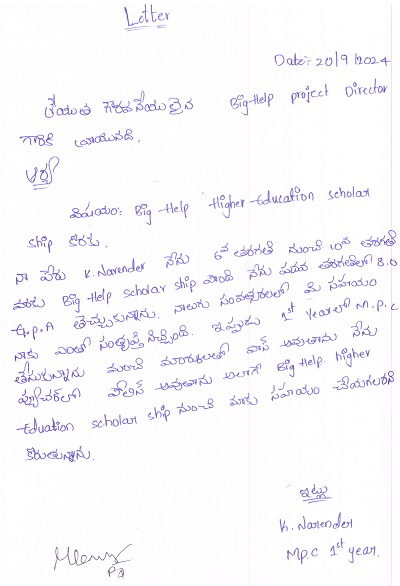 Letter
Date:- 20/9/2024
శ్రీయుత గౌరవనీయులైన Big-Help project Director
గారికి వ్రాయునది.
ఆర్య
విషయం: Big-Help Higher-Education scholar
ship కొరకు.
నా పేరు K.Narender నేను 6వ తరగతి నుంచి 10వ తరగతి
వరకు Big Help scholar ship పొంది నేను పదవ తరగతిలో 8.0
G.P.A తెచ్చుకున్నాను. నాలుగు సంవత్సరాలలో మీ సహాయం
నాకు ఎంతో సంతృప్తి నిచ్చింది. ఇప్పుడు 1st yearలో M.P.C
తీసుకున్నాను మంచి మార్కులతో పాస్ అవుతాను నేను
ఫ్యూచర్‌లో పోలీస్ అవుతాను అలాగే Big Help higher
Eduation scholar ship నుంచి మాకు సహాయం చేయగలరని
కోరుతున్నాను.
ఇట్లు
K. Narender
MPC 1st year.